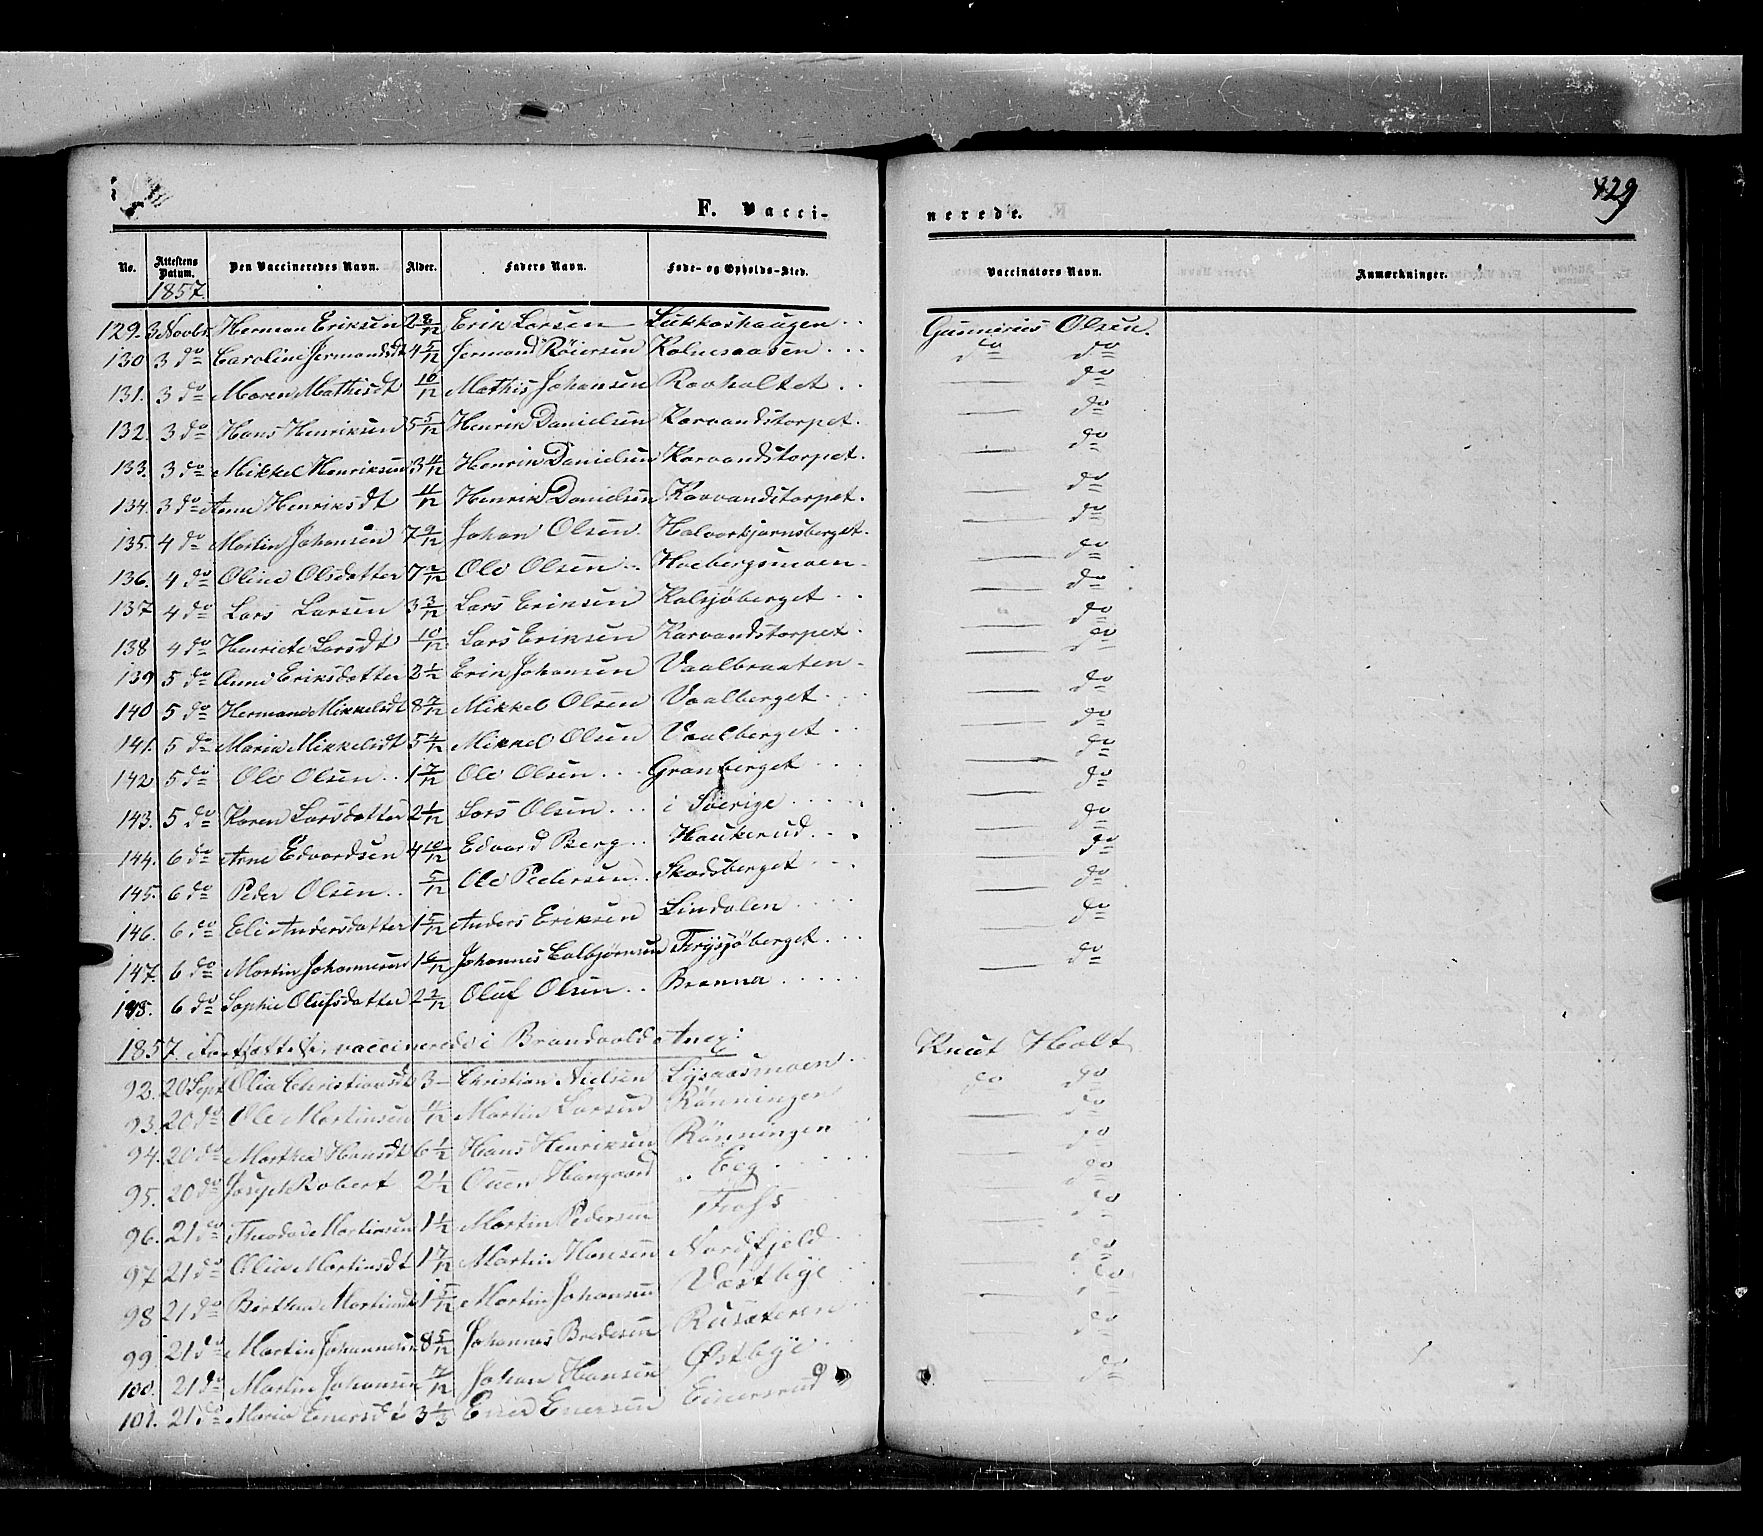 429
F. Vacci-
nerede.
No. Attestens Datum. Den Vaccineredes Navn. Alder. Faders Navn. Føde- og Opholds-Sted. Vaccinators Navn. Anmærkninger.
1857.
129. 3 Novbr. Herman Eriksen 2 8/12 Erik Larsen Lukkashaugen Gunnerius Olsen.
130 3 do Caroline Jermandsdt 4 5/12 Jermand Røiersen Kalnesaasen do do
131. 3 do Maren Mathisdt 10/12 Mathis Johansen Ravholtet — do
132 3 do Hans Henriksen 5 5/12 Henrik Danielsen Karvandstorpet. — do
133. 3 do Mikkel Henriksen 3 11/12 Henrik Danielsen Karvandstorpet. — do
134. 3 do Anne Henriksdt 11/12 Henrik Danielsen Karvandstorpet. — do
135. 4 do Martin Johansen 7 9/12 Johan Olsen. — do
136. 4 do Oline Olsdatter 7 Ole Olsen Hvebergsmoen — do
137 4 do Lars Larsen 3 3/12 Lars Eriksen Kalsjøberget — do
138 4 do Henriete Larsdt 10/12 Lars Eriksen Karvandstorpet. do
139 5 do Anne Eriksdatter 2 1/2 Erik Johansen Vaalbraaten — do
140 5 do Hermane Mikkelsdt 8 7/12 Mikkel Olsen Vaalberget — do
141. 5 do Maria Mikkelsdt 5 4/12 Mikkel Olsen Vaalberget — do
142 5 do Ole Olsen 1 7/12 Ole Olsen Granberget — do
143. 5 do Karen Larsdatter 2 1/12 Lars Olsen i Sverige — do
144. 6 do Arne Edvardsen 4 10/12 Edvard Berg Haukerud — do
145. 6 do Peder Olsen 5/12 Ole Pedersen Skardsberget — do
146. 6 do Eli Andersdatter 1 5/12 Anders Eriksen Lindalen — do
147. 6 do Martin Johannesen 1 6/12 Johannes Frysjøberget — do
148. 6 do Sophie Olufsdatter 2 2/12 Oluf Olsen Branna — do
1857. Fortsættelse, vaccinerede i Brandvold Anex:
92. 20 Sept Olia Christiansdt 3 — Christian Nielsen Lysaasmoen Knut Holt
93. 20 do Ole Martinsen 11/12 Martin Larsen Rønningen do do
94. 20 do Marthea Hansdt 6 1/2 Hans Henriksen Rønningen — do
95. 20 do Joseph Robert 2 1/2 Ouen Haugaard Eeg — do
96. 21 do Theodor Martinsen 1 1/2 Martin Pedersen — do
97. 21 do Olia Martinsdt 1 7/12 Martin Hansen Nordfjeld — do
98 21 do Berthea Martinsdt 1 5/12 Martin Johansen Vestbye — do
99. 21 do Martin Johannesen 8 5/12 Johannes Bredesen Rusæteren — do
100. 21 do Martin Johansen 7/12 Johan Hansen Østbye — do
101. 21 do Maria Enersdt 3 1/3 Ener Enersen Enersrud — do